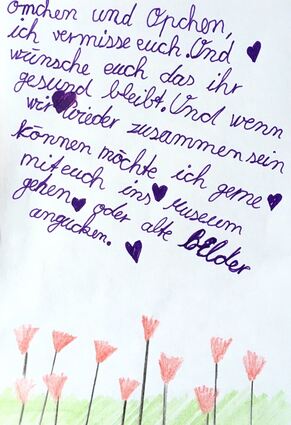 Omchen und Opchen,
ich vermisse euch. Und
wünsche euch das ihr
gesund bleibt. Und wenn
wir wieder zusammen sein
können möchte ich gerne
mit euch ins Museum
gehen oder alte Bilder
angucken.